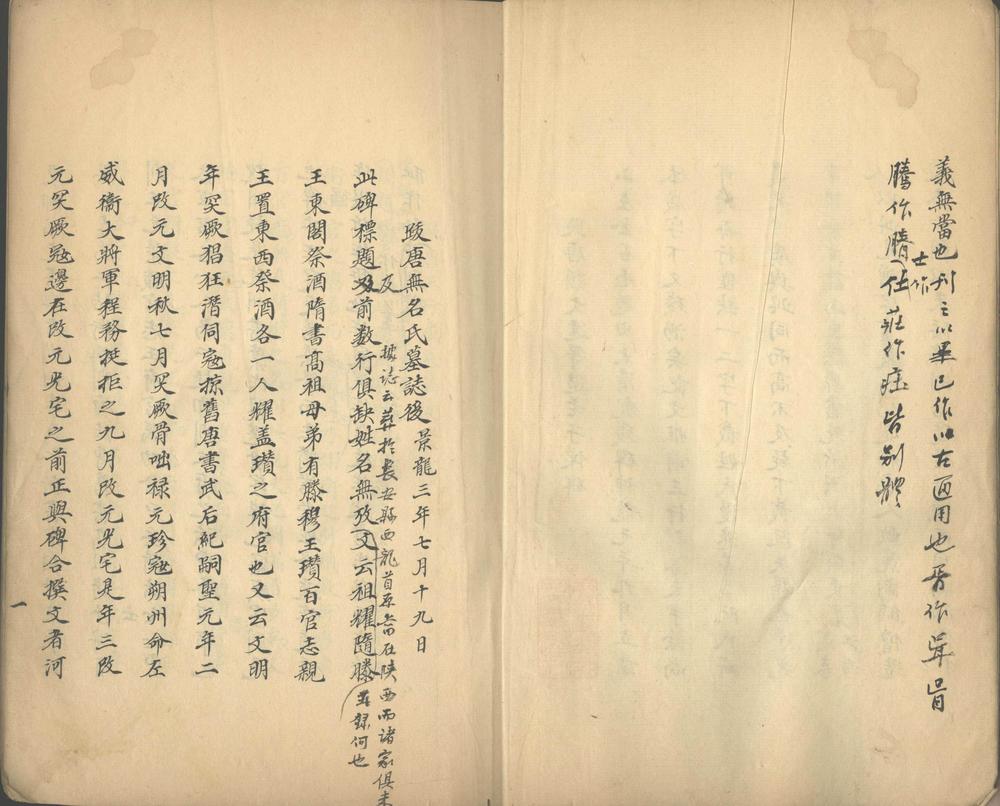 義無當也刊之以畢已作㠯古通用也胥作㪯
士作
騰作𦡳仕莊作㽵皆别體
跋唐無名氏墓誌後 景龍三年七月十九日
據誌云葬於長安縣西龍首原當在陝西而諸家俱未
及
此碑標題及前数行俱缺姓名無攷文云祖耀隨滕
並録何也
王東閣祭酒隋書髙祖母弟有滕穆王瓚百官志親
王置東西祭酒各一人耀盖瓚之府官也又云文明
年突厥猖狂潛伺寇掠舊唐書武后紀嗣聖元年二
月改元文明秋七月突厥骨咄禄元珍寇朔州命左
威衛大將軍程務挺拒之九月改元光宅是年三改
元突厥寇邊在改元光宅之前正與碑合撰文者河
一